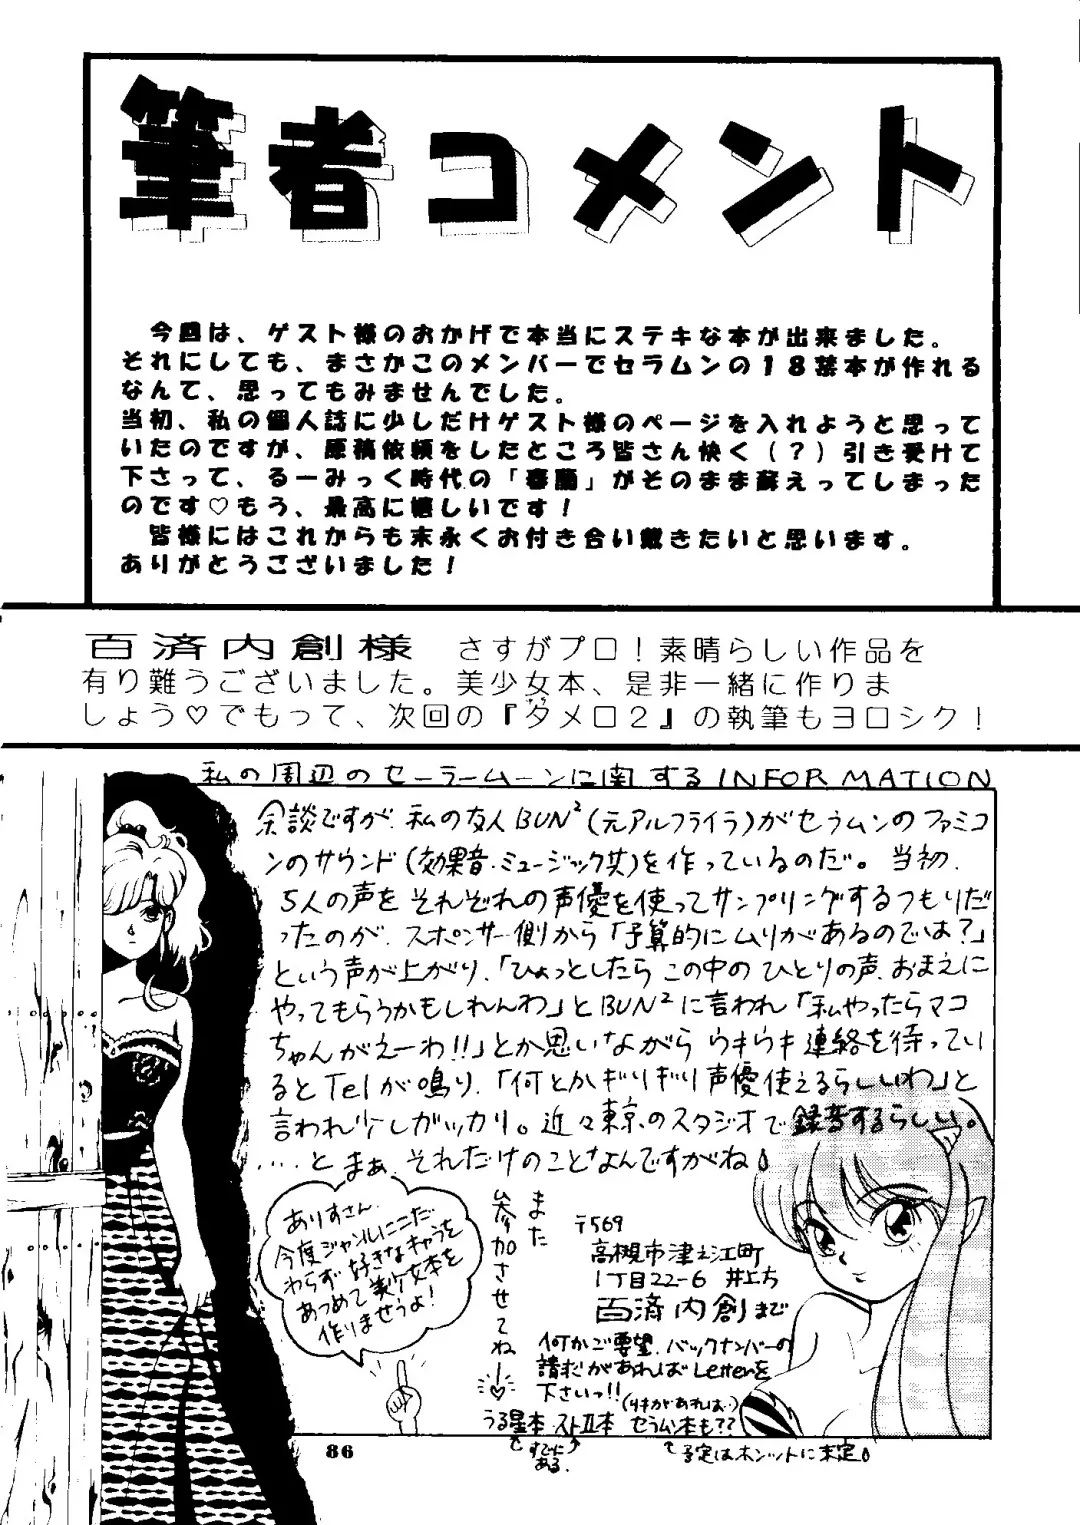 筆者コメント
今回は、ゲスト様のおかげで本当にステキな本が出来ました。
それにしても、まさかこのメンバーでセラムンの18禁本が作れる
なんて、思ってもみませんでした。
当初、私の個人誌に少しだけゲスト様のページを入れようと思って
いたのですが、原稿依頼をしたところ皆さん快く(？)引き受けて
下さって、るーみっく時代の「春蘭」がそのまま蘇えってしまった
のです♡もう、最高に嬉しいです！
皆様にはこれからも末永くお付き合い戴きたいと思います。
ありがとうございました！
百済内創様 さすがプロ！素晴らしい作品を
有り難うございました。美少女本、是非一緒に作りま
しょう♡でもって、次回の『タメロ2』の執筆もヨロシク！
私の周辺のセーラームーンに関するINFORMATION
余談ですが、私の友人BUN²(元アルフライラ)がセラムンのファミコ
ンのサウンド(効果音・ミュージック共)を作っているのだ。当初、
5人の声をそれぞれの声優を使ってサンプリングするつもりだ
ったのが、スポンサー側から「予算的にムリがあるのでは？」
という声が上がり、「ひょっとしたらこの中のひとりの声、おまえに
やってもらうかもしれんわ」とBUN²に言われ「私やったらマコ
ちゃんがえーわ!!」とか思いながらウキウキ連絡を待ってい
るとTelが鳴り、「何とかギリギリ声優使えるらしいわ」と
言われ少しガッカリ。近々東京のスタジオで録音するらしい。
……とまぁ、それだけのことなんですがね
ありすさん、
今度ジャンルにこだ
わらず好きなキャラを
あつめて美少女本を
作りませうよ！
また
参加させてねー♡
〒569
高槻市津之江町
1丁目22-6 井上方
百済内創まで
何かご要望、バックナンバーの
請求があればLetterを
下さいっ!!
うる星本 ストⅡ本 セラムン本も??
すでに
ある。
予定はホンットに未定
86